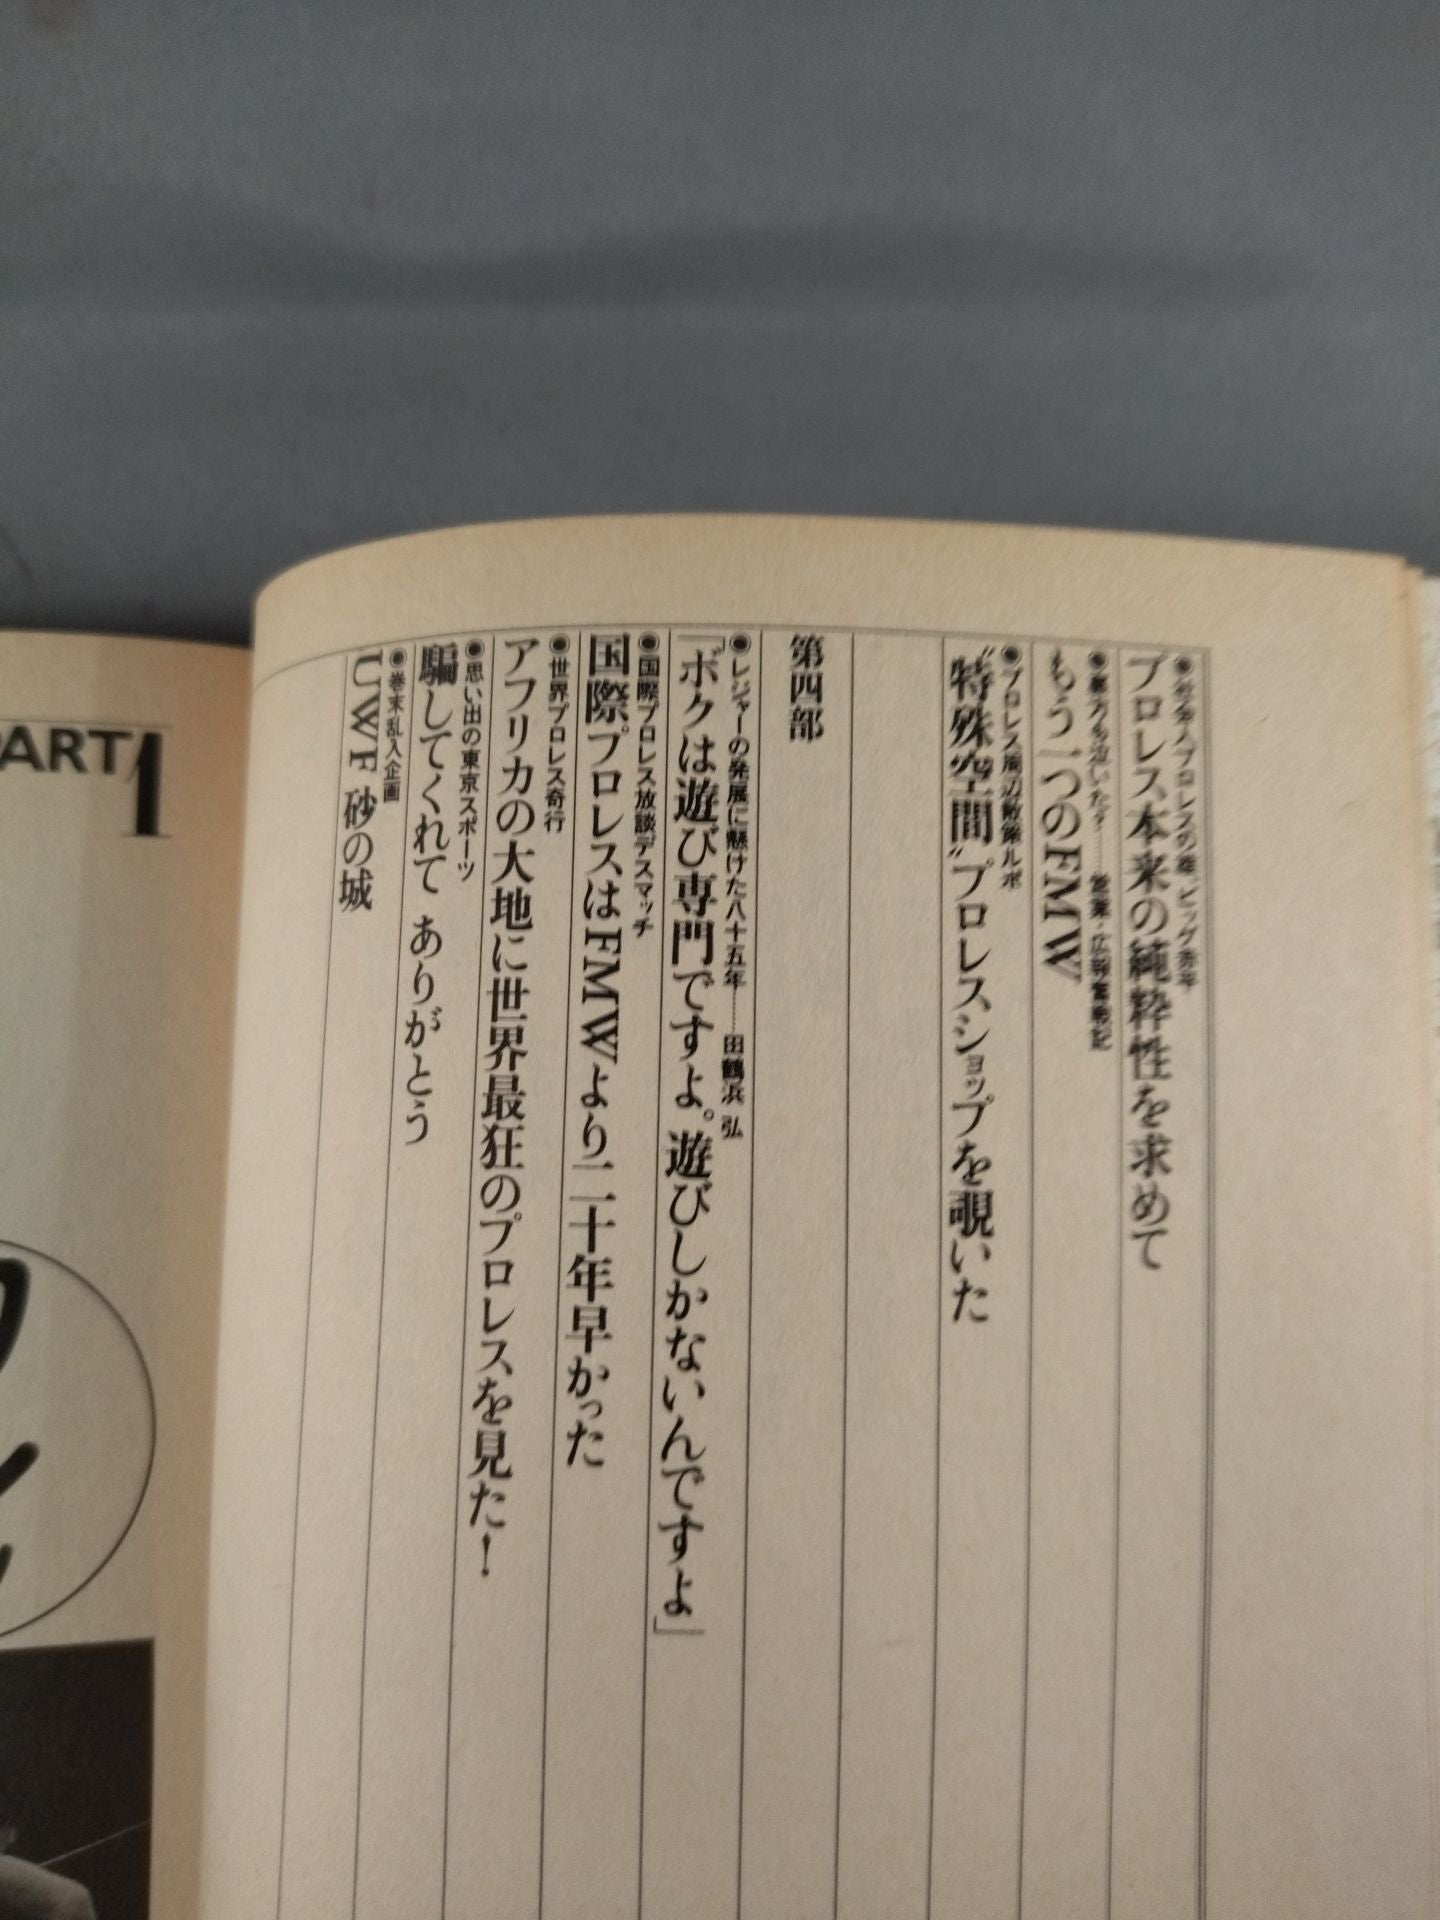 ●社会人プロレスの雄、ビッグ奔平
プロレス本来の純粋性を求めて
●裏方も泣いた?……営業・広報奮戦記
もう一つのFMW
●プロレス周辺散策ルポ
“特殊空間”プロレスショップを覗いた
第四部
●レジャーの発展に懸けた八十五年……田鶴浜 弘
「ボクは遊び専門ですよ。遊びしかないんですよ」
●国際プロレス放談デスマッチ
国際プロレスはFMWより二十年早かった
●世界プロレス奇行
アフリカの大地に世界最狂のプロレスを見た!
●思い出の東京スポーツ
騙してくれて ありがとう
●巻末乱入企画
UWF 砂の城
PART1